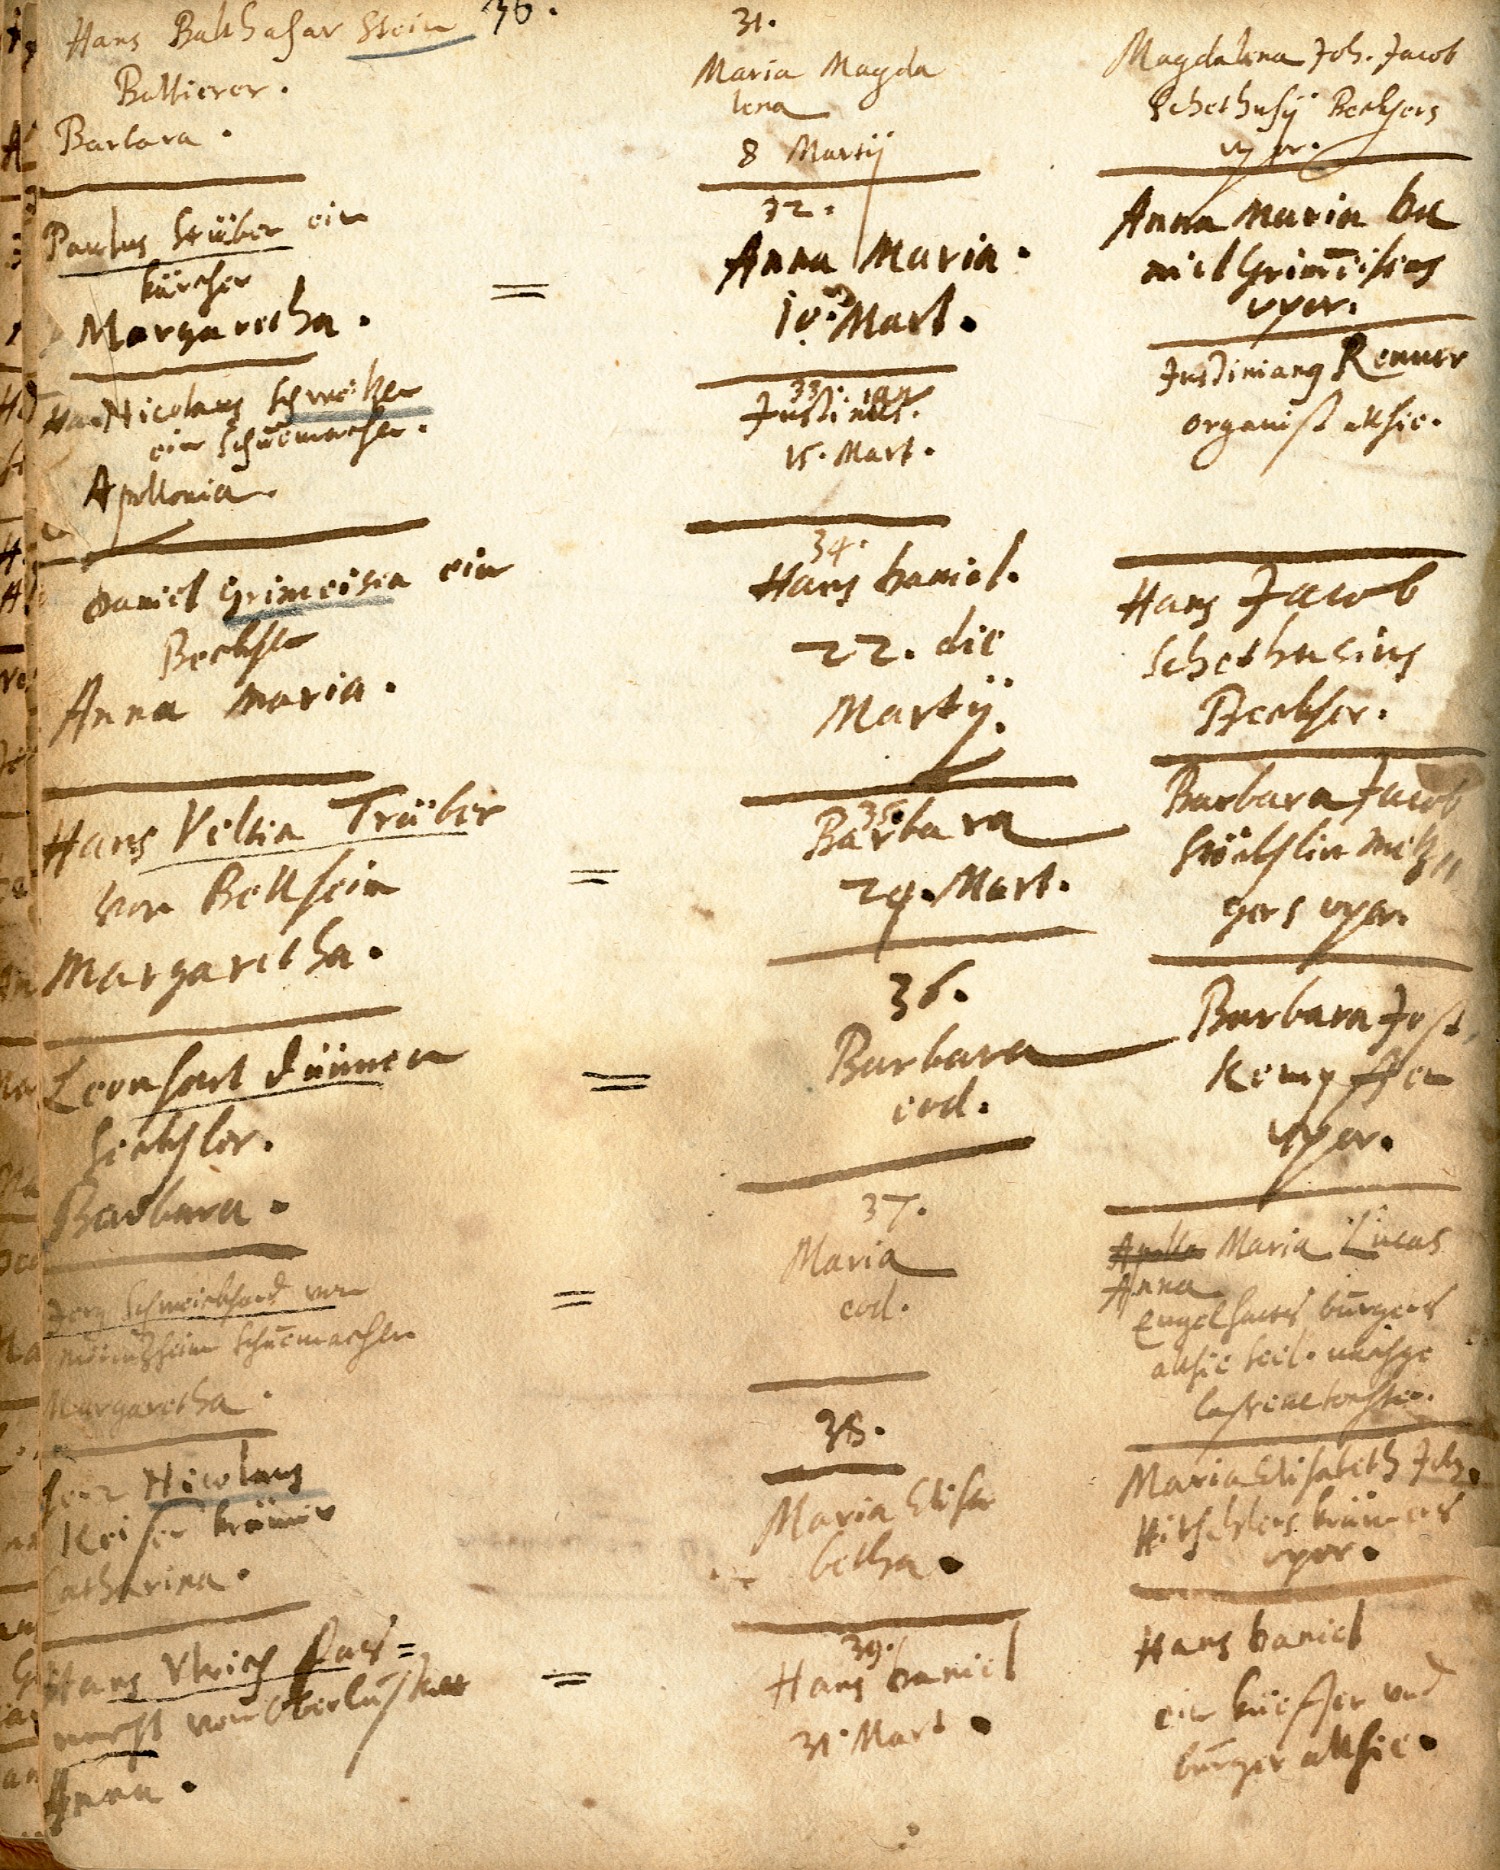 36.
Hans Balthasar Stein
Balbierer.
Barbara.
31.
Maria Magda
lena
8 Martÿ
Magdalena Joh. Jacob
Schethusÿ Beckhers
uxor.
Paulus Stüber ein
kürsher
Margaretha.
32.
Anna Maria.
10. Mart.
Anna Maria Da
niel Grim̄eisens
uxor.
Nicolaus Schweitzer
ein Schuemacher.
Apollonia.
33.
Justinian.
15. Mart.
Justinianus Renner
organist allhie.
Daniel Grimeisen ein
Beckher
Anna Maria.
34.
Hans Daniel.
22. die
Martÿ.
Hans Jacob
Schethusius
Beckher.
Hans Veltin Trüber
von Bellheim
Margaretha.
35.
Barbara
29. Mart.
Barbara Jacob
Stöcklin Metz„
gers uxor.
Leonhart Dümen
Barbara.
36.
Barbara
eod.
Barbara Jost
Kempffen
uxor.
Jerg Schweickhard von
Schuemacher
Margaretha.
37.
Maria
eod.
Maria Lucas
Anna
Engelharts burgers
allhie seel. nachge
lassene tochter.
38.
Herr Nicolaus
Keiser krämer
Catharina.
Maria Elisa
betha.
Maria Elisabeth
krämers
uxor.
Hans Ulrich Fas=
nacht von
Anna.
39.
Hans Daniel
31. Mart.
Hans Daniel
ein küeffer und
burger allhie.